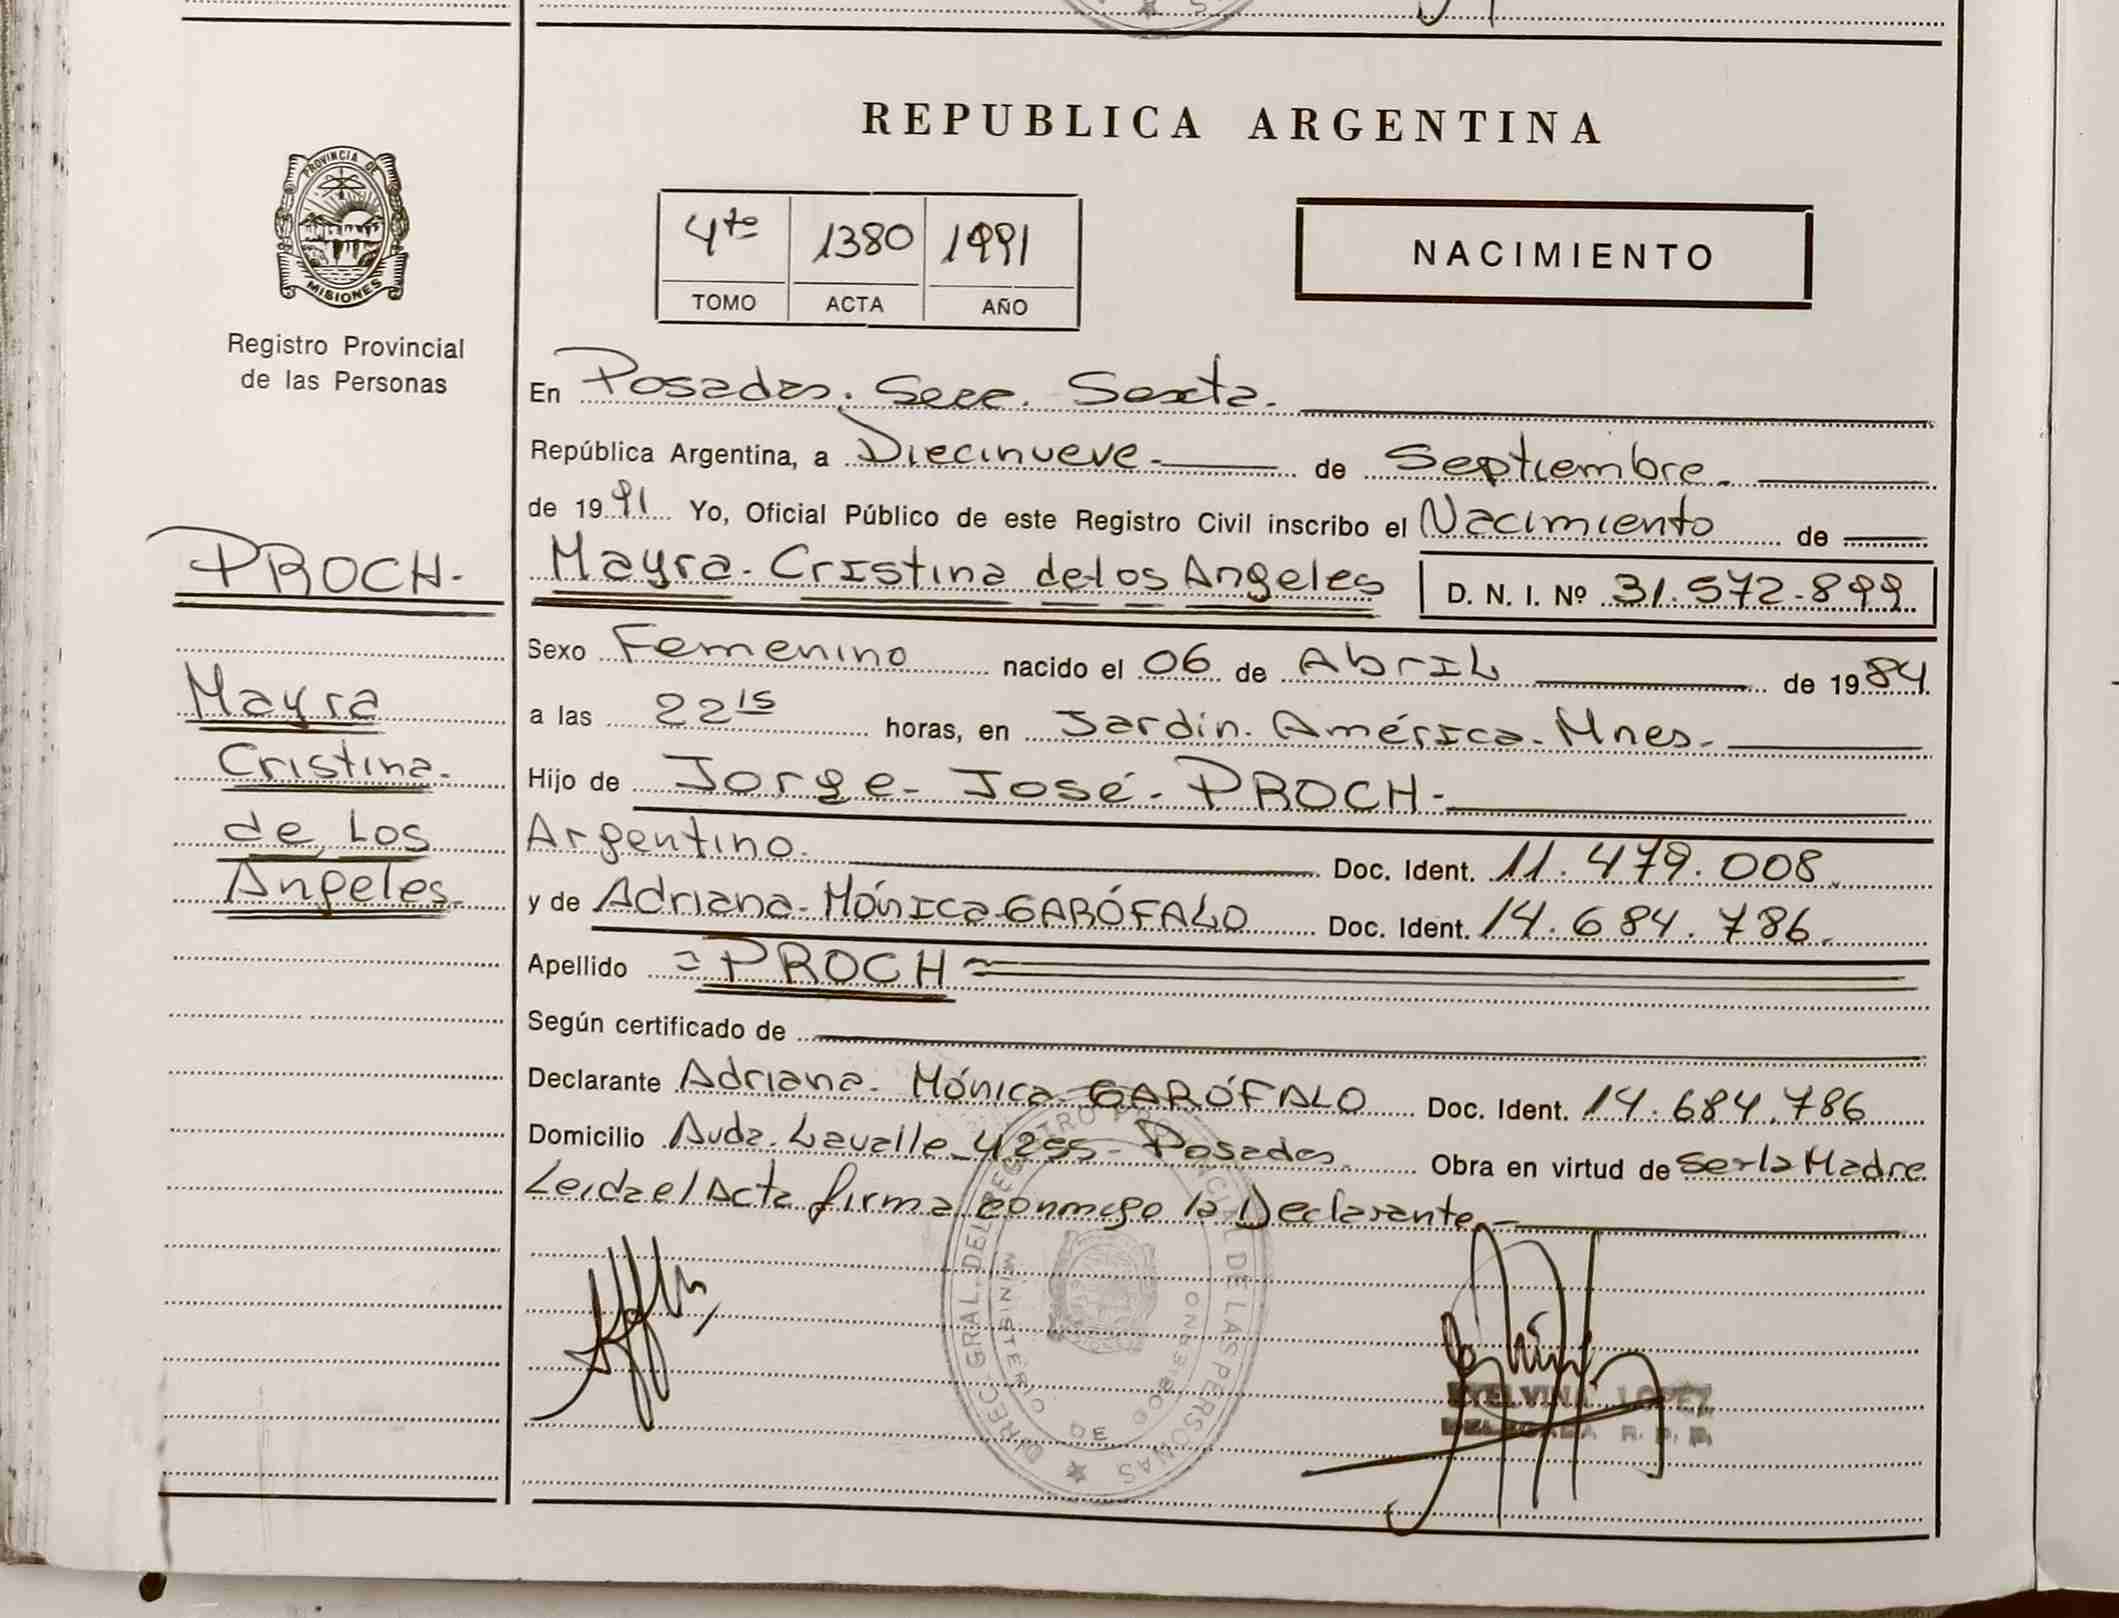 REPUBLICA ARGENTINA
PROVINCIA DE
MISIONES
Registro Provincial
de las Personas
4to 1380 1991
TOMO ACTA AÑO
NACIMIENTO
En Posadas. Secc. Sexta.
República Argentina, a Diecinueve.- de Septiembre.
de 1991 Yo, Oficial Público de este Registro Civil inscribo el Nacimiento de
PROCH.-
Mayra
Cristina.
de Los
Angeles.
Mayra. Cristina de los Angeles D. N. I. Nº 31.572.899
Sexo Femenino nacido el 06 de Abril de 1984.
a las 22 15 horas, en Jardín. América. Mnes.-
Hijo de Jorge- José- PROCH-
Argentino. Doc. Ident. 11.479.008.
y de Adriana- Mónica-GARÓFALO Doc. Ident. 14.684.786.
Apellido = PROCH =
Según certificado de
Declarante Adriana- Mónica-GARÓFALO Doc. Ident. 14.684.786
Domicilio Avda. Lavalle 4255- Posadas. Obra en virtud de ser la Madre.
Leida el Acta firma conmigo la Declarante.-
DIREC. GRAL. DEL REGISTRO PROVINCIAL DE LAS PERSONAS
MINISTERIO DE GOBIERNO
ETELVINA LOPEZ
DELEGADA R. P. P.